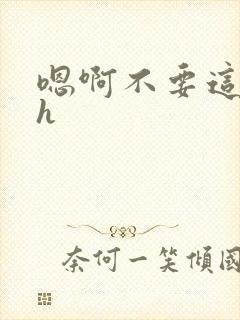 嗯啊不要這
h
奈何一笑傾國